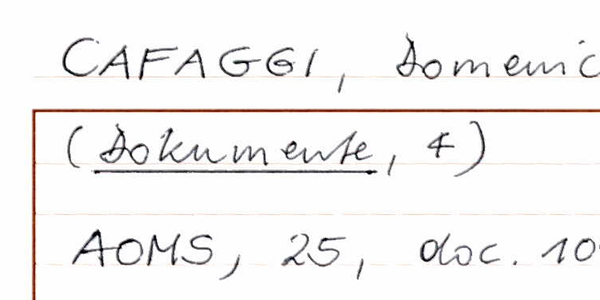 CAFAGGI, Domenic
(Dokumente, 4)
AOMS, 25, doc. 10